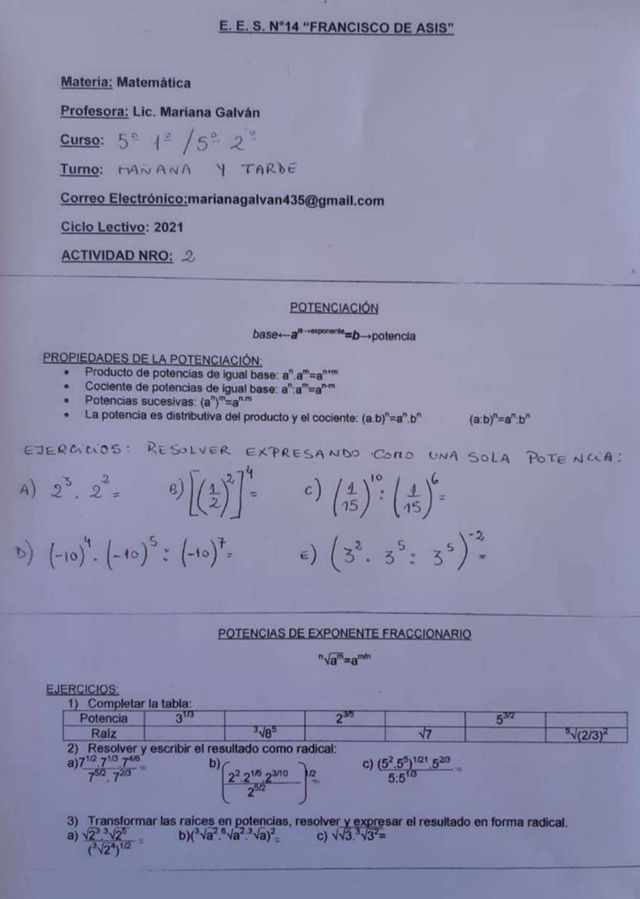 E. E. S. N°14 "FRANCISCO DE ASIS"
Materia: Matemática
Profesora: Lic. Mariana Galván
Curso: 5º 1º / 5º 2º
Turno: MAÑANA Y TARDE
Correo Electrónico:marianagalvan435@gmail.com
Ciclo Lectivo: 2021
ACTIVIDAD NRO: 2
POTENCIACIÓN
base←aⁿ→exponente=b→potencia
PROPIEDADES DE LA POTENCIACIÓN:
• Producto de potencias de igual base: aⁿ.aᵐ=aⁿ⁺ᵐ
• Cociente de potencias de igual base: aⁿ:aᵐ=aⁿ⁻ᵐ
• Potencias sucesivas: (aⁿ)ᵐ=aⁿ·ᵐ
• La potencia es distributiva del producto y el cociente: (a.b)ⁿ=aⁿ.bⁿ (a:b)ⁿ=aⁿ:bⁿ
EJERCICIOS: RESOLVER EXPRESANDO COMO UNA SOLA POTENCIA:
A) 2³ . 2² = B) [(1/2)²]⁴ = C) (1/15)¹⁰ : (1/15)⁶ =
D) (-10)⁴ . (-10)⁵ : (-10)⁷ = E) (3² . 3⁵ : 3⁵)⁻² =
POTENCIAS DE EXPONENTE FRACCIONARIO
ⁿ√aᵐ=a^m/n
EJERCICIOS:
1) Completar la tabla:
Potencia 3^1/3 2^3/5 5^3/2
Raíz ³√8⁵ √7 ⁵√(2/3)²
2) Resolver y escribir el resultado como radical:
a) 7^1/2.7^1/3.7^4/5 / 7^5/2.7^2/3 = b) (2².2^1/5.2^3/10 / 2^5/2)^1/2 = c) (5².5⁵)^1/21.5^2/3 / 5:5^1/3 =
3) Transformar las raíces en potencias, resolver y expresar el resultado en forma radical.
a) √2³.³√2⁵ / (³√2⁴)^1/2 = b)(³√a².⁶√a².³√a)²= c) √√3.³√3²=